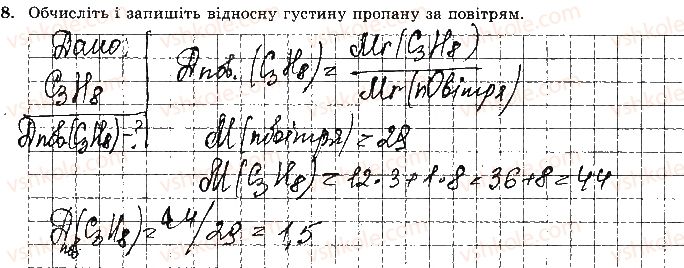 8. Обчисліть і запишіть відносну густину пропану за повітрям.
Дано:
C₃H₈
Dпов.(C₃H₈)-?
Dпов.(C₃H₈) = Mr(C₃H₈) / Mr(повітря)
M(повітря) = 29
M(C₃H₈) = 12·3+1·8 = 36+8 = 44
Dпов(C₃H₈) = 44/29 = 1,5